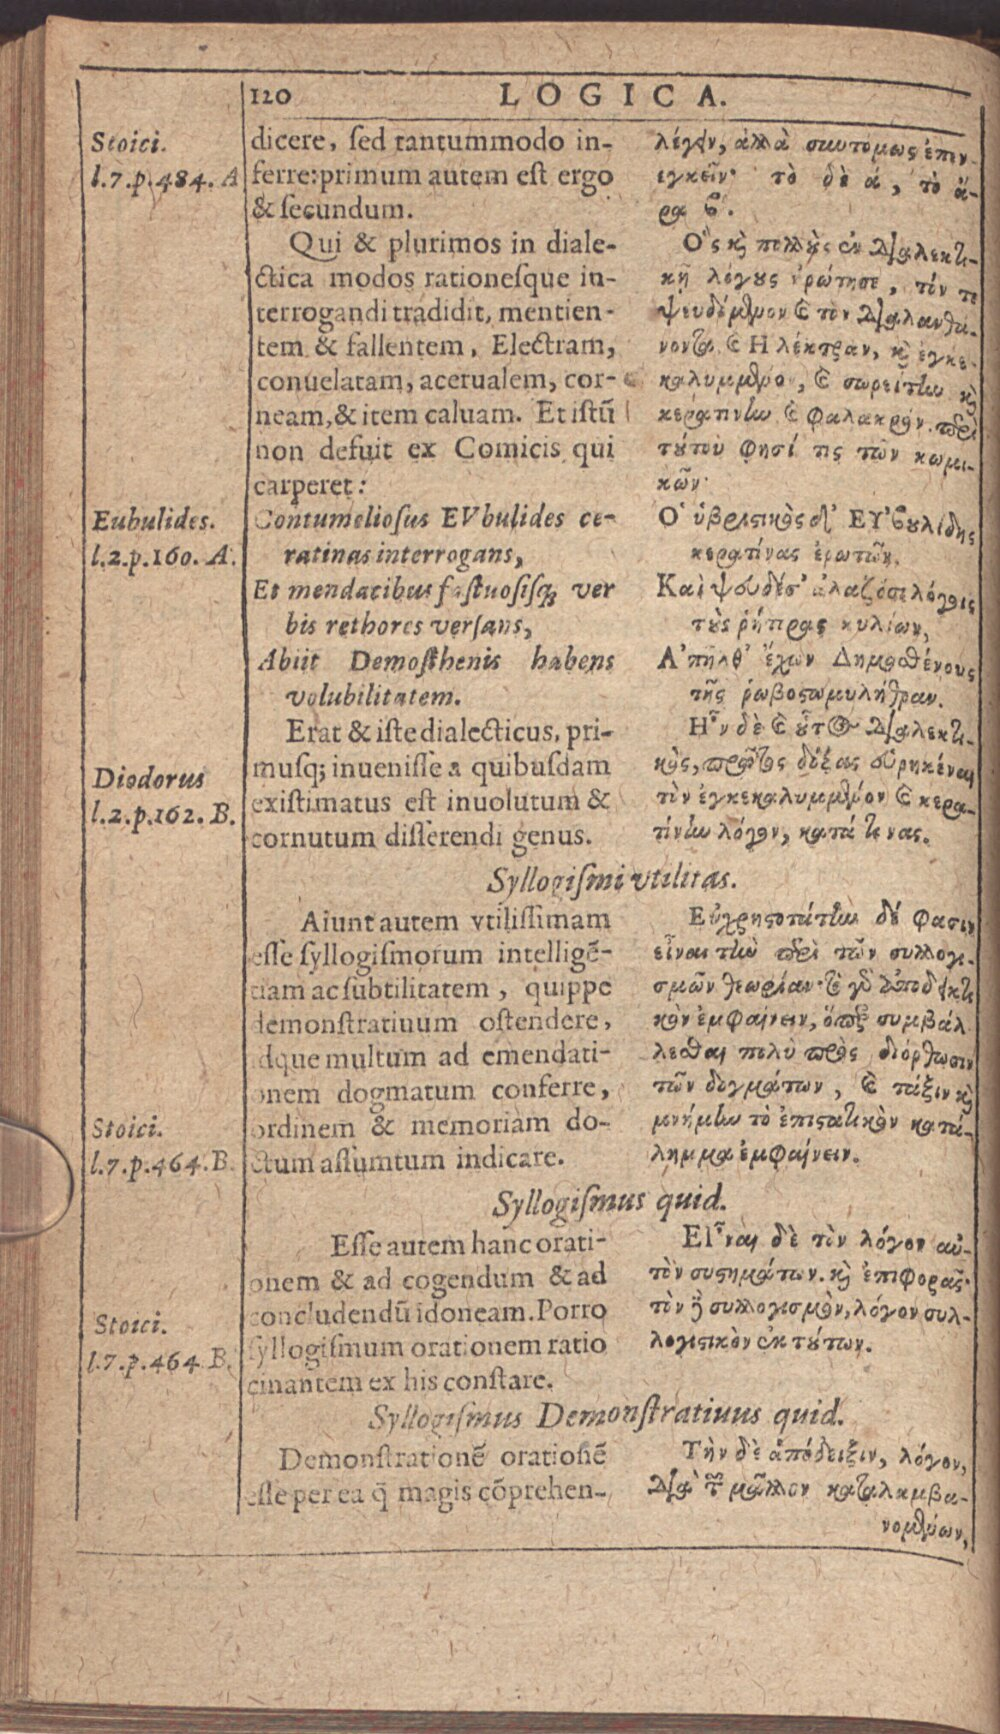 120 LOGICA.
Stoici.
l.7.p.484. A
dicere, sed tantummodo in-
ferre: primum autem est ergo
& secundum.
Qui & plurimos in diale-
ctica modos rationesque in-
terrogandi tradidit, mentien-
tem & fallentem, Electram,
conuelatam, aceruálem, cor-
neam, & item caluam. Et istū
non defuit ex Comicis qui
carperet:
Eubulides.
l.2.p.160. A.
Contumeliosus EVbulides ce-
ratinas interrogans,
Et mendacibus fastuosisq; ver
bis rethores versans,
Abiit Demosthenis habens
volubilitatem.
Diodorus
l.2.p.162. B.
Erat & iste dialecticus, pri-
musq; inuenisse a quibusdam
existimatus est inuolutum &
cornutum disserendi genus.
λέγειν, ἀλλὰ συντόμως ἐπεν-
εγκεῖν· τὸ δὲ ά, τὸ ἄ-
ρα β.
Ὃς κὶ πολλοὺς ἐν διαλεκτι-
κῇ λόγους ἠρώτησε, τόν τε
ψευδόμενον & τὸν διαλανθά-
νοντα & Ηλέκτραν, κὶ ἐγκε-
καλυμμένο, & σωρείτην κὶ
κερατίνην & φαλακρόν. περὶ
τούτου φησί τις τῶν κωμι-
κῶν·
Ο᾽ ὑβριστικὸς δ᾽ ΕΥ᾽βουλίδης
κερατίνας ἐρωτῶν,
Καὶ ψευδέσ᾽ ἀλαζόσι λόγοις
τοὺς ῥήτορας κυλίων,
Α᾽πῆλθ᾽ ἔχων Δημοσθένους
τῆς ῥωβοστωμυλήθραν.
Η῏ν δὲ & οὗτος διαλεκτι-
κὸς, πρῶτος δόξας εὑρηκέναι
τὸν ἐγκεκαλυμμένον & κερα-
τίνην λόγον, κατά τινας.
Syllogismi vtilitas.
Aiunt autem vtilissimam
esse syllogismorum intelligē-
tiam ac subtilitatem, quippe
demonstratiuum ostendere,
idque multum ad emendati-
onem dogmatum conferre,
Stoici.
l.7.p.464.B.
ordinem & memoriam do-
ctum assumtum indicare.
Εὐχρηστοτάτην δέ φασιν
εἶναι τὴν περὶ τῶν συλλογι-
σμῶν θεωρίαν· τὸ γὸ ἀποδεικτι
κὸν ἐμφαίνειν, ὅπερ συμβάλ
λεσθαι πολὺ πρὸς διόρθωσιν
τῶν δογμάτων, & τάξιν κὶ
μνήμην τὸ ἐπιστατικὸν κατά-
λημμα ἐμφαίνειν.
Syllogismus quid.
Esse autem hanc orati-
onem & ad cogendum & ad
Stoici.
l.7.p.464 B.
concludendū idoneam. Porro
syllogismum orationem ratio
cinantem ex his constare.
ΕΙ῏ναι δὲ τὸν λόγον αὐ-
τὸν συστημάτων. κὶ ἐπιφορᾶς·
τὸν δὲ συλλογισμὸν, λόγον συλ-
λογιστικὸν ἐκ τούτων.
Syllogismus Demonstratiuus quid.
Demonstrationē orationē
esse per ea q̄ magis cōprehen-
Τὴν δὲ ἀπόδειξιν, λόγον,
διὰ τῶν μᾶλλον καταλαμβα-
νομένων,